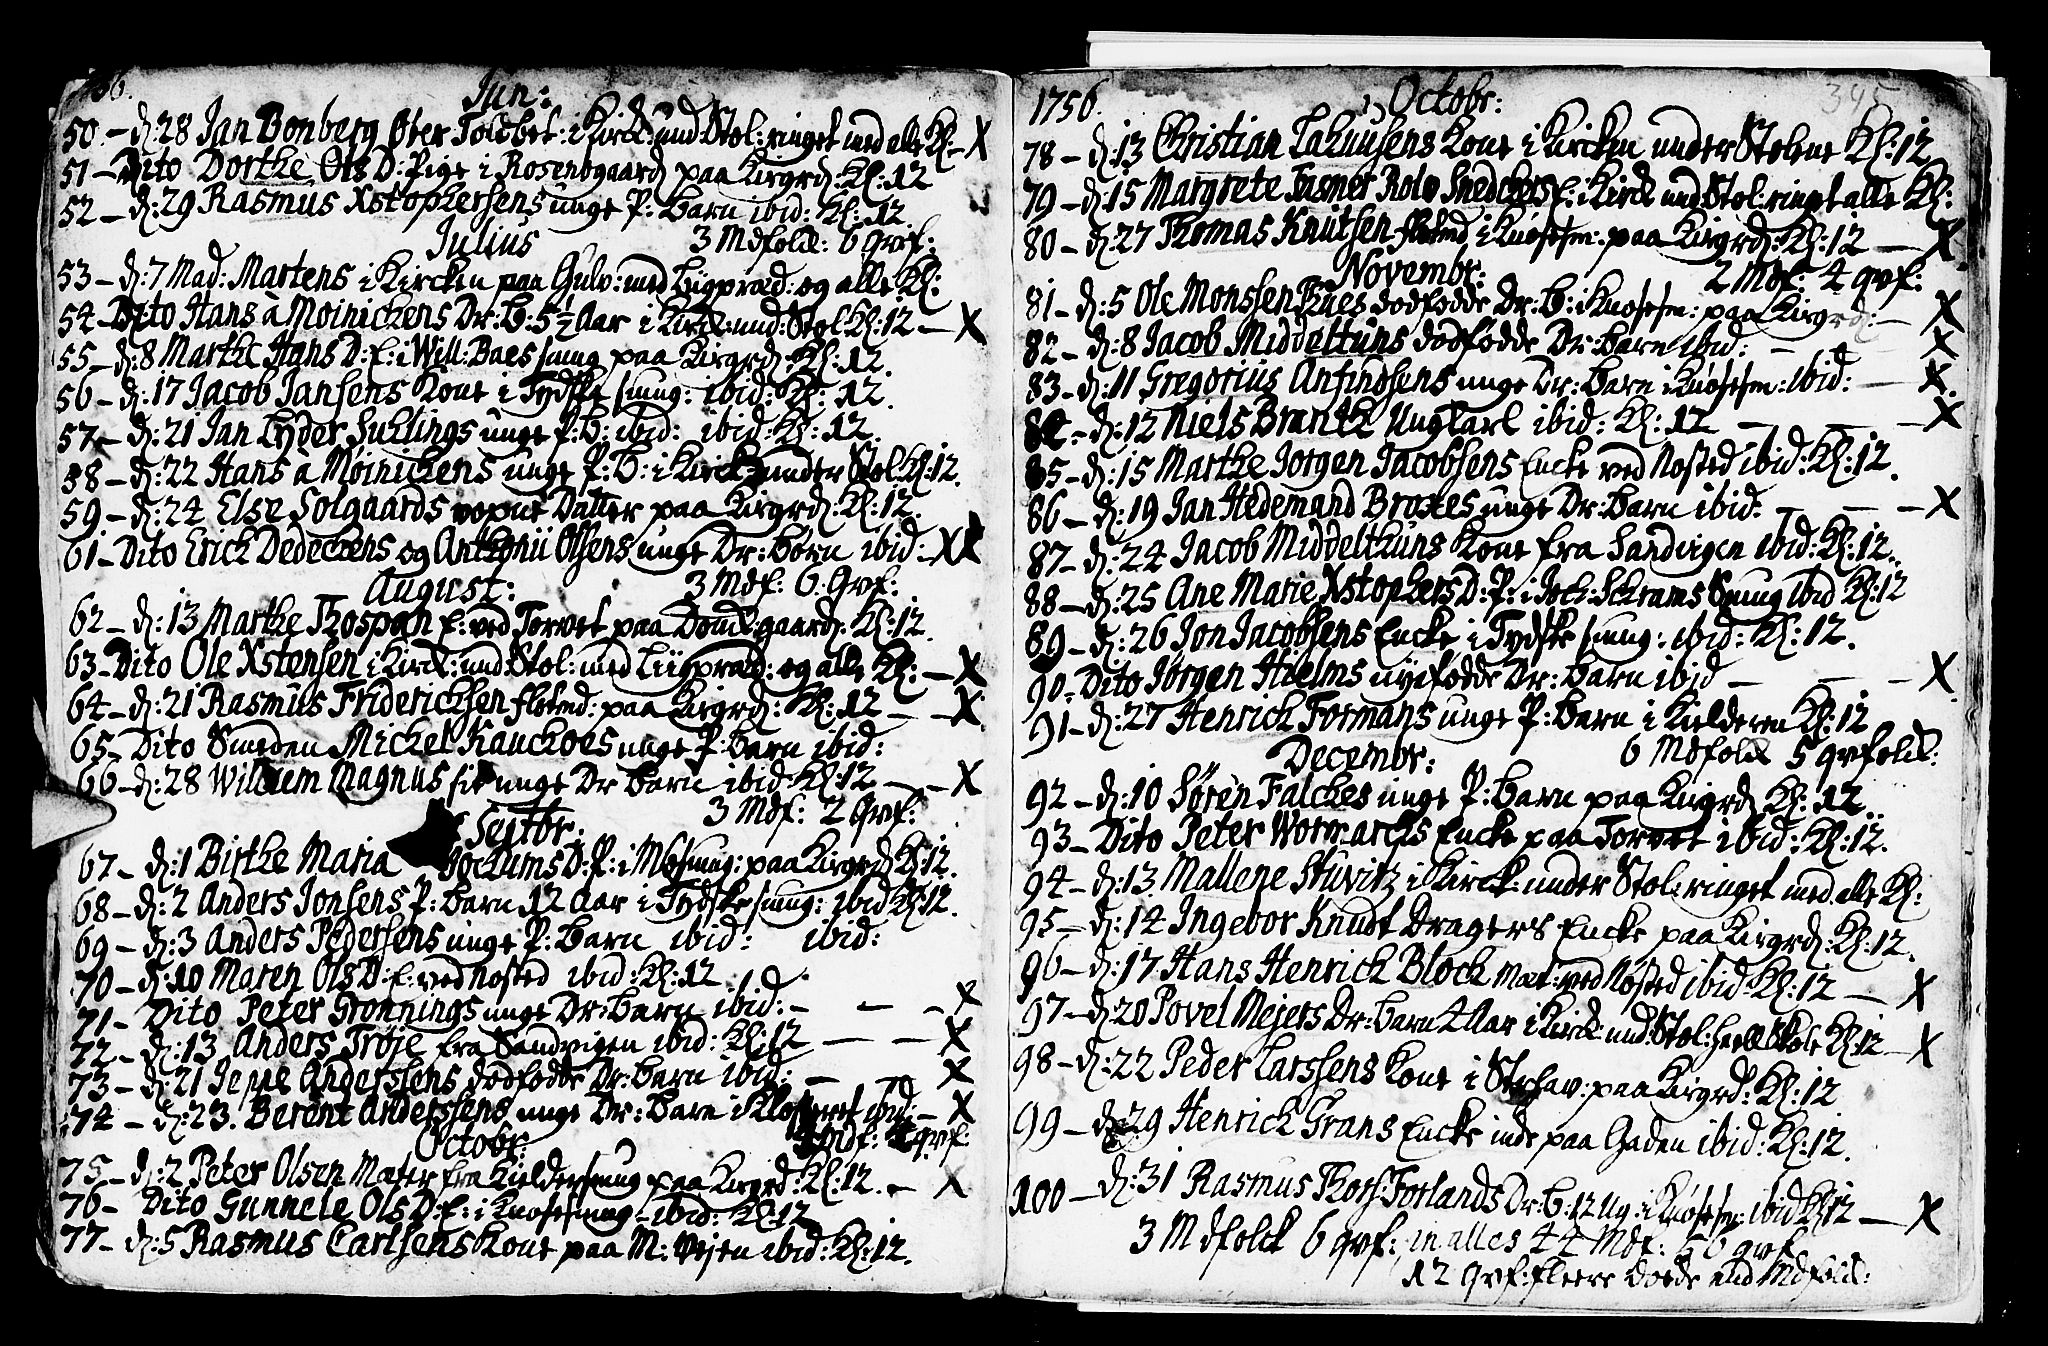 1756. Jun:
50 – d: 28 Jan Bonberg over Toldbet: i Kirck: und Stol: ringet med alle Kl: – X
51 – Dito Dorthe Ols D: Pige i Rosendgaard paa Kirgrd: Kl: 12
52 – d: 29 Rasmus Xstophersens unge P: barn ibid: Kl: 12
Julius 3 Mdfolck: 6 qvif:
53 – d: 7 Mad: Martens i Kircken paa Gulv: med Liigpræd: og alle Kl:
54 – Dito Hans à Møinickens Dr: B: 5½ Aar i Kirck: und: Stol Kl: 12 – X
55 – d: 8 Marthe Hans D: E: i Will: Baes smug paa Kirgrd: Kl: 12.
56 – d: 17 Jacob Jansens Kone i Tydske smug: ibid: Kl: 12.
57 – d: 21 Jan Lyder Suhlings unge P: B: ibid: ibid: Kl: 12.
58 – d: 22 Hans à Møinickens unge P: B: i Kirck: under Stol Kl: 12.
59 – d: 24 Else Solgaards voxne Datter paa Kirgrd: Kl: 12.
61 – Dito Erick Dedeckens og Anthonii Olsens unge Dr: børn ibid: – XX
August: 3 Mdf: 6. Qvf:
62 – d: 13 Marthe E: ved Torvet paa Domk: gaard: Kl: 12.
63 – Dito Ole Xstensen i Kirck: und Stol: med Liigpræd: og alle Kl: – X
64 – d: 21 Rasmus Fridericksen paa Kirgrd: Kl: 12 – – X
65 – Dito Smeden Mickel Hanckoes unge P: barn ibid:
66 – d: 28 Willhem Magnus unge Dr barn ibid: Kl: 12 – – X
3 Mdf: 2 Qvf:
Septbr:
67 – d: 1 Birthe Maria Jochums D: P: i smug: paa Kirgrd: Kl: 12.
68 – d: 2 Anders Jonsens P: barn 12 Aar i Tydske smug: ibid Kl: 12.
69 – d: 3 Anders Pedersens unge P: barn ibid: ibid:
70 – d: 10 Maren Ols D: E: ved Nøsted ibid: Kl: 12
71 – Dito Peter Gronnings unge Dr: barn ibid: – – – X
72 – d: 13 Anders Trøje fra Sandvigen ibid: Kl: 12 – – – X
73 – d: 21 Jeppe Anderssens dødfødde Dr: barn ibid: – – X
74 – d: 23. Berent Anderssens unge Dr: barn i Klosteret ibid: – X
Octobr: Mdf: qvf:
75 – d: 2 Peter Olsen Mater fra Kieldersmug paa Kirgrd: Kl: 12. – X
76 – Dito Gunnele Ols D: E: i Knøsesmug – ibid: Kl: 12
77 – d: 5 Rasmus Carlsens Kone paa M: Vejen ibid: Kl: 12.
1756. Octobr: 345
78 – d: 13 Christian Kone i Kircken under Stolene Kl: 12
79 – d: 15 Margrete E: i Kirck und Stol: ringet alle Kl:
80 – d: 27 Thomas Knutsen i Knøsesm: paa Kirgrd: Kl: 12 – X
Novembr: 2 Mdf: 4 qvf:
81 – d: 5 Ole Monssen dødfødde Dr: B: i Knøsesm: paa Kirgrd: – X
82 – d: 8 Jacob Middeltuns dødfødde Dr: barn ibid: – – X
83 – d: 11 Gregorius Anfindsens unge Dr: barn i Knøsesm: ibid: – X
84 – d: 12 Niels Brantz Ungkarl ibid: Kl: 12 – – – X
85 – d: 15 Marthe Jørgen Jacobsens Encke ved Nøsted ibid: Kl: 12.
86 – d: 19 Jan Hedemand Broxes unge Dr: barn ibid: – – – X
87 – d: 24 Jacob Middelthuns Kone fra Sandvigen ibid: Kl: 12.
88 – d: 25 Ane Marie Xstophers D: P: i Joch: Schrams Smug ibid Kl: 12
89 – d: 26 Jon Jacobsens Encke i Tydske smug: ibid: Kl: 12.
90 – Dito Jørgen Hielms nyefødde Dr: barn ibid – – – X
91 – d: 27 Henrick Formans unge P: barn i Kielderen Kl: 12
Decembr: 6 Mdfolck 5 qvfolck:
92 – d: 10 Søren Falches unge P: barn paa Kirgrd: Kl: 12.
93 – Dito Peter Wormarchs Encke paa Torvet ibid: Kl: 12.
94 – d: 13 Mallene Stuvitz i Kirck: under Stol: ringet med alle Kl:
95 – d: 14 Ingebor Knudt Dragers Encke paa Kirgrd: Kl: 12.
96 – d: 17 Hans Henrick Block Mat: ved Nøsted ibid: Kl: 12 – X
97 – d: 20 Povel Mejers Dr: barn 4 Aar i Kirck: und: Stol: heel Skole Kl: 12 – X
98 – d: 22 Peder Larssens Kone i paa Kirgrd: Kl: 12
99 – d: 29 Henrick Grans Encke inde paa Gaden ibid: Kl: 12.
100 – d: 31 Rasmus Thors: Forlands Dr: B: 12 Ug: i Knøsesm: ibid Kl: 12 – X
3 Mdfolck 6 qvf: in alles 44 Mdf: 56 qvf
12 qvf: fleere døde end Mdfolck: